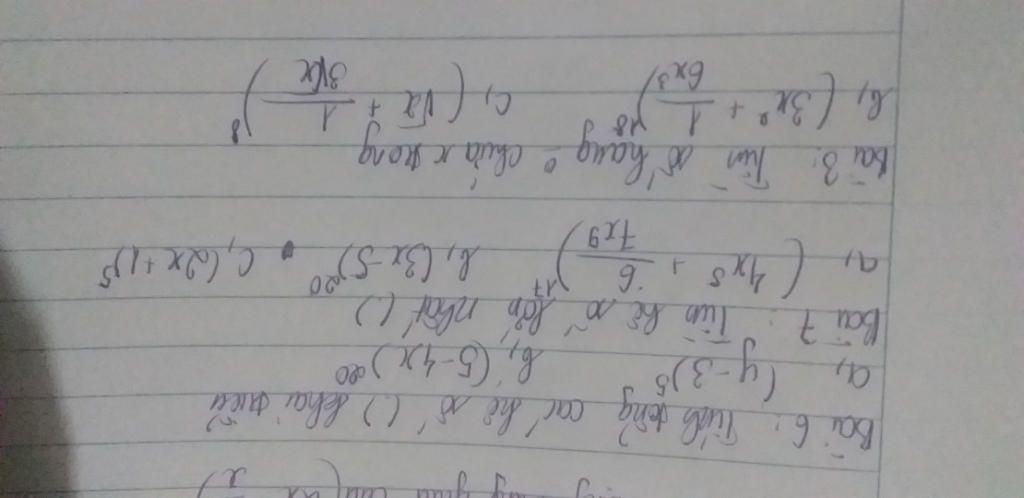 Bài 6: Tính tổng các hệ số (.) khai triển
a, (y - 3)⁵ b, (5 - 4x)²⁰
Bài 7: Tìm hệ số lớn nhất (.)
a, (4x⁵ + 6/7x⁹)¹⁷ b, (3x - 5)²⁰ c, (2x + 1)⁵
Bài 3: Tìm số hạng 0 chứa x trong
b, (3x² + 1/6x³)¹⁸ c, (√x + 1/3√x)⁸